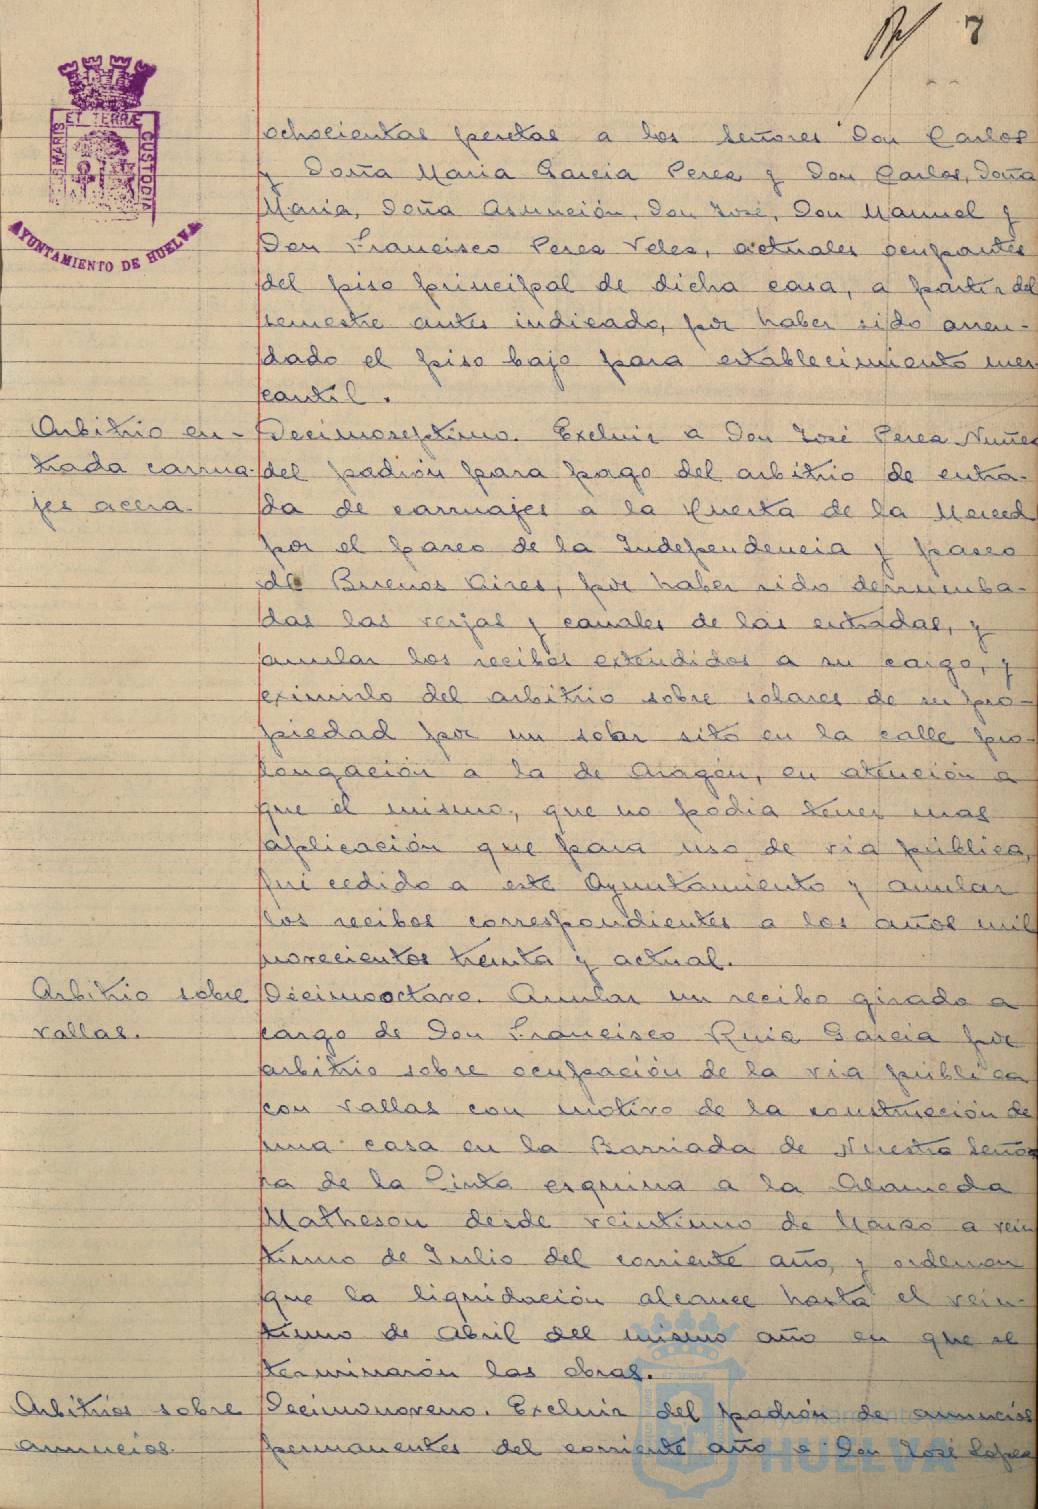 7
ET TERRÆ
MARIS
CUSTODIA
AYUNTAMIENTO DE HUELVA
ochocientas pesetas a los señores Don Carlos
y Doña Maria Garcia Perez y Don Carlos, Doña
Maria, Doña Asunción, Don José, Don Manuel y
Don Francisco Perez Velez, actuales ocupantes
del piso principal de dicha casa, a partir del
semestre antes indicado, por haber sido arren-
dado el piso bajo para establecimiento mer
cantil.
Arbitrio en-
trada carrua-
jes acera.
Decimoseptimo. Excluir a Don José Perez Nuñez
del padrón para pago del arbitrio de entra-
da de carruajes a la Huerta de la Merced
por el paseo de la Independencia y paseo
de Buenos Aires, por haber sido derrumba-
das las verjas y canales de las entradas, y
anular los recibos extendidos a su cargo, y
eximirlo del arbitrio sobre solares de su pro-
piedad por un solar sito en la calle pro-
longación a la de Aragón, en atención a
que el mismo, que no podia tener mas
aplicación que para uso de via pública,
fué cedido a este Ayuntamiento y anular
los recibos correspondientes a los años mil
novecientos treinta y actual.
Arbitrio sobre
vallas.
Décimooctavo. Anular un recibo girado a
cargo de Don Francisco Ruiz Garcia por
arbitrio sobre ocupación de la via pública
con vallas con motivo de la construcción de
una casa en la Barriada de Nuestra Seño
ra de la Cinta esquina a la Alameda
Matheson desde veintiuno de Marzo a vein
tiuno de Julio del corriente año, y ordenar
que la liquidación alcance hasta el vein-
tiuno de Abril del mismo año en que se
terminarón las obras.
Arbitrios sobre
anuncios.
Decimonoveno. Excluir del padrón de anuncios
permanentes del corriente año a Don José Lopez
HUELVA